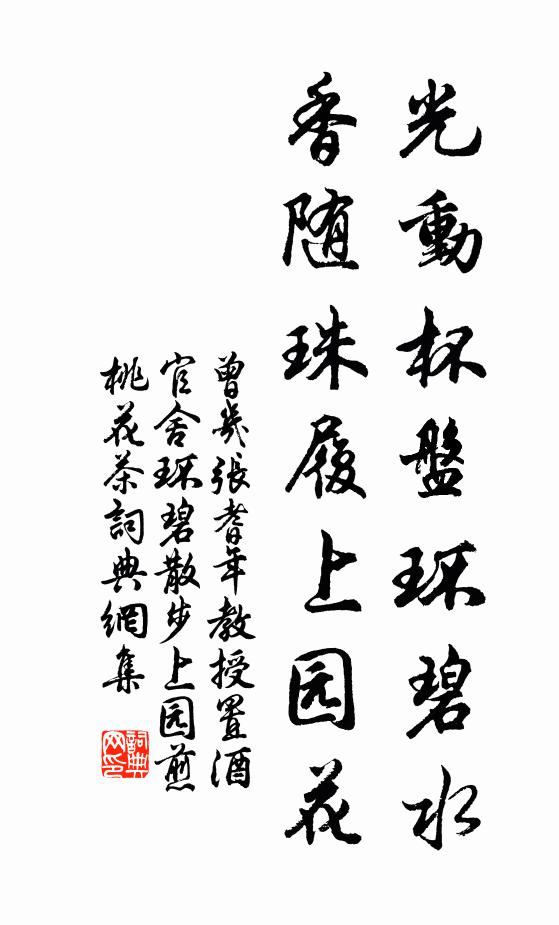 光動杯盤环碧水
香随珠履上园花
曾幾張耆年教授置酒
官舍环碧散步上园煎
桃花茶詞典網集
詞典网印